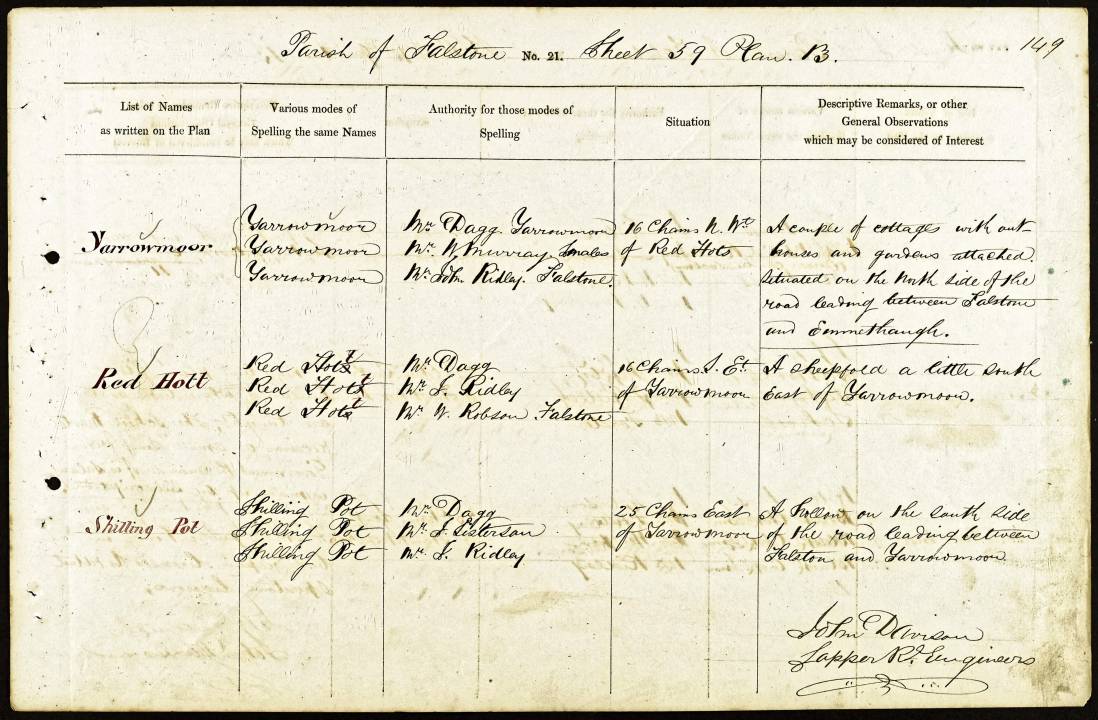 Parish of Falstone No. 21. Sheet 59 Plan. B.
149
List of Names
as written on the Plan
Various modes of
Spelling the same Names
Authority for those modes of
Spelling
Situation
Descriptive Remarks, or other
General Observations
which may be considered of Interest
Yarrowmoor
Yarrowmoor
Yarrowmoor
Yarrowmoor
Mr. Dagg Yarrowmoor
Mr. W. Murray Smales
Mr. John Ridley. Falstone.
16 Chains N. Wt.
of Red Hots
A couple of cottages with out-
houses and gardens attached.
Situated on the North side of the
road leading between Falstone
and Emmethaugh.
Red Hott
Red Hott
Red Hott
Red Hott
Mr. Dagg
Mr. J. Ridley
Mr. W. Robson Falstone
16 Chains S. Et.
of Yarrowmoor
A sheepfold a little south
East of Yarrowmoor.
Shilling Pot
Shilling Pot
Shilling Pot
Shilling Pot
Mr. Dagg
Mr. J. Sisterson
Mr. J. Ridley
25 Chains East
of Yarrowmoor
A hollow on the south side
of the road leading between
Falston and Yarrowmoor
John Davison
Sapper Rl. Engineers